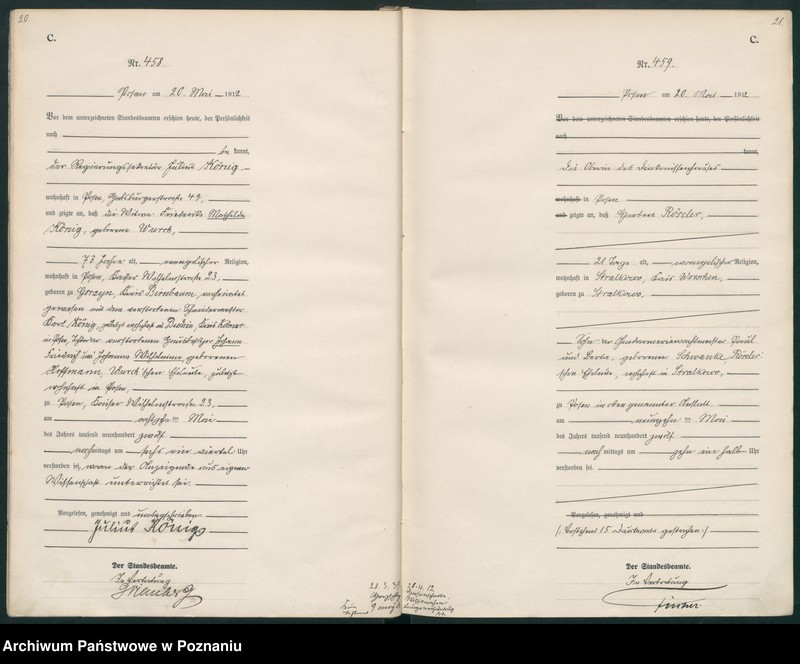 20.
C.
Nr. 458
Posen am 20. Mai 1912
Vor dem unterzeichneten Standesbeamten erschien heute, der Persönlichkeit
nach
be kannt,
der Regierungssekretär Julius König
wohnhaft in Posen,
und zeigte an, daß die Witwe Friederike Mathilde
König, geborene Wurch,
73 Jahre alt, evangelischer Religion,
wohnhaft in Posen, Kaiser Wilhelmstrasse 23,
geboren zu Gorzyn, Kreis Birnbaum, verheiratet
gewesen mit dem verstorbenen Schneidermeister
Karl König, zuletzt wohnhaft in Kreis Kolmar
in Posen, Tochter der verstorbenen Johann
Friedrich und Johanna Wilhelmine, geborenen
Hoffmann, Wurch'schen Eheleute, zuletzt
wohnhaft in Posen,
zu Posen, Kaiser Wilhelmstrasse 23,
am achtzehnten Mai
des Jahres tausend neunhundert zwölf
nachmittags um sechs ein viertel Uhr
verstorben sei, wovon der Anzeigende aus eigener
Wissenschaft unterrichtet sei.
Vorgelesen, genehmigt und unterschrieben
Julius König
Der Standesbeamte.
In Vertretung
21.
C.
Nr. 459.
Posen am 20. Mai 1912
Vor dem unterzeichneten Standesbeamten erschien heute, der Persönlichkeit
nach
kannt,
Die Oberin des Diakonissenhauses
wohnhaft in Posen
und zeigte an, daß Herbert Röseler,
21 Tage alt, evangelischer Religion,
wohnhaft in Stralkowo, Kreis Wreschen,
geboren zu Stralkowo,
Sohn der Gendarmeriewachtmeister Paul
und Berta, geborenen Schwanke, Röseler'
schen Eheleute, wohnhaft in Stralkowo,
zu Posen in oben genannter Anstalt
am neunzehnten Mai
des Jahres tausend neunhundert zwölf
nachmittags um zehn ein halb Uhr
verstorben sei.
Vorgelesen, genehmigt und
/: Vorstehend 15 Druckworte gestrichen :/
Der Standesbeamte.
In Vertretung
Archiwum Państwowe w Poznaniu